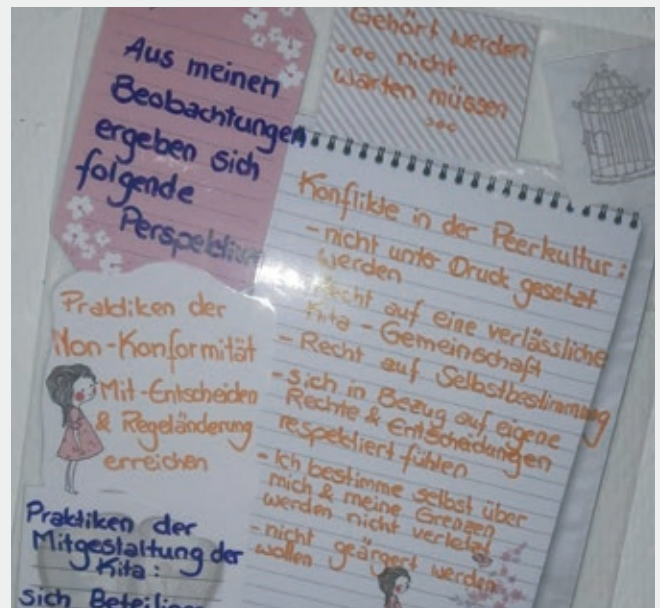 Aus meinen
Beobachtungen
ergeben sich
folgende
Perspektiven
Gehört werden
... nicht
warten müssen
...
Konflikte in der Peerkultur:
- nicht unter Druck gesetzt
werden
- Recht auf eine verlässliche
Kita - Gemeinschaft
- Recht auf Selbstbestimmung
- Sich in Bezug auf eigene
Rechte & Entscheidungen
respektiert fühlen
- Ich bestimme selbst über
mich & meine Grenzen
werden nicht verletzt
- nicht geärgert werden
wollen
Praktiken der
Non-Konformität
Mit-Entscheiden
& Regeländerung
erreichen
Praktiken der
Mitgestaltung der
Kita:
sich